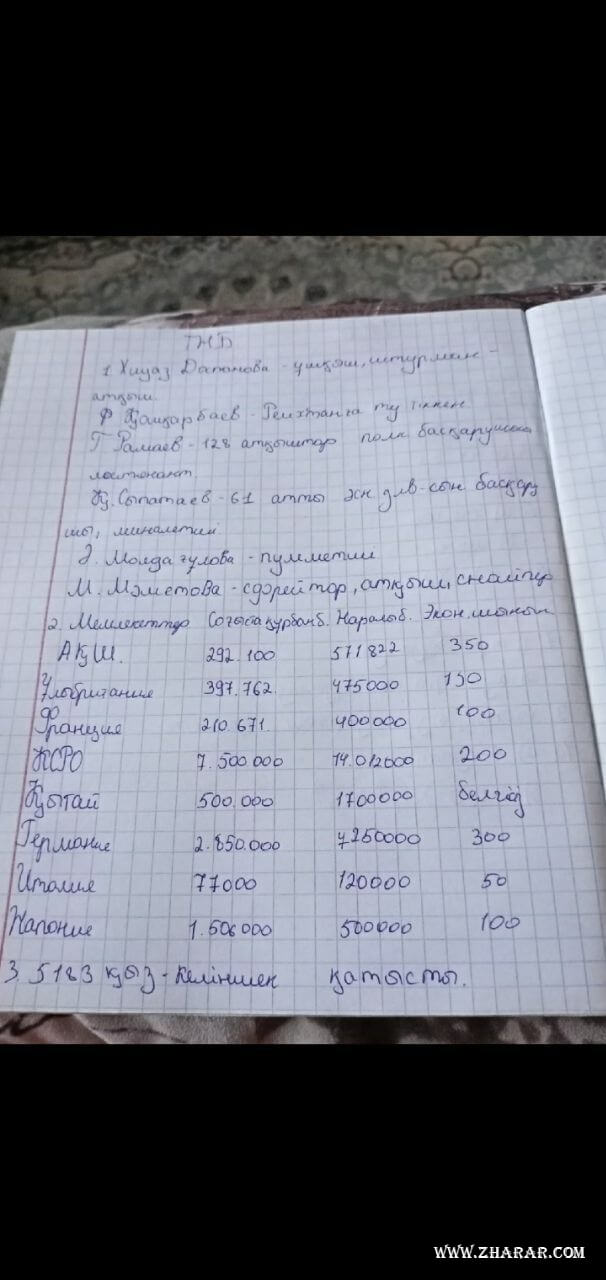 ТЖБ
1 Хиуаз Даланова - ұшқыш, штурман -
атқыш.
Р Қошқарбаев - Рейхтанга ту тіккен
Г Рамаев - 128 атқыштар полк басқарушысы
лейтенант.
Қ. Сыпатаев - 61 атты әск див-сын басқару
шы, миналетші
Ә. Молдағулова - пулеметші
М. Мәметова - ефрейтор, атқыш, снайпер
2. Мемлекеттер Соғыста құрбан б. Жаралы б. Экон. шығын
АҚШ. 292.100 571822 350
Ұлыбритание 397.762 475000 150
Франция 210.671. 400000 100
КСРО 7.500000 14.012000 200
Қытай 500.000 1700000 белгіз
Германие 2.850.000 7250000 300
Италия 77000 120000 50
Жапоние 1.506000 500000 100
3. 5183 қыз-келіншек қатысты.
WWW.ZHARAR.COM